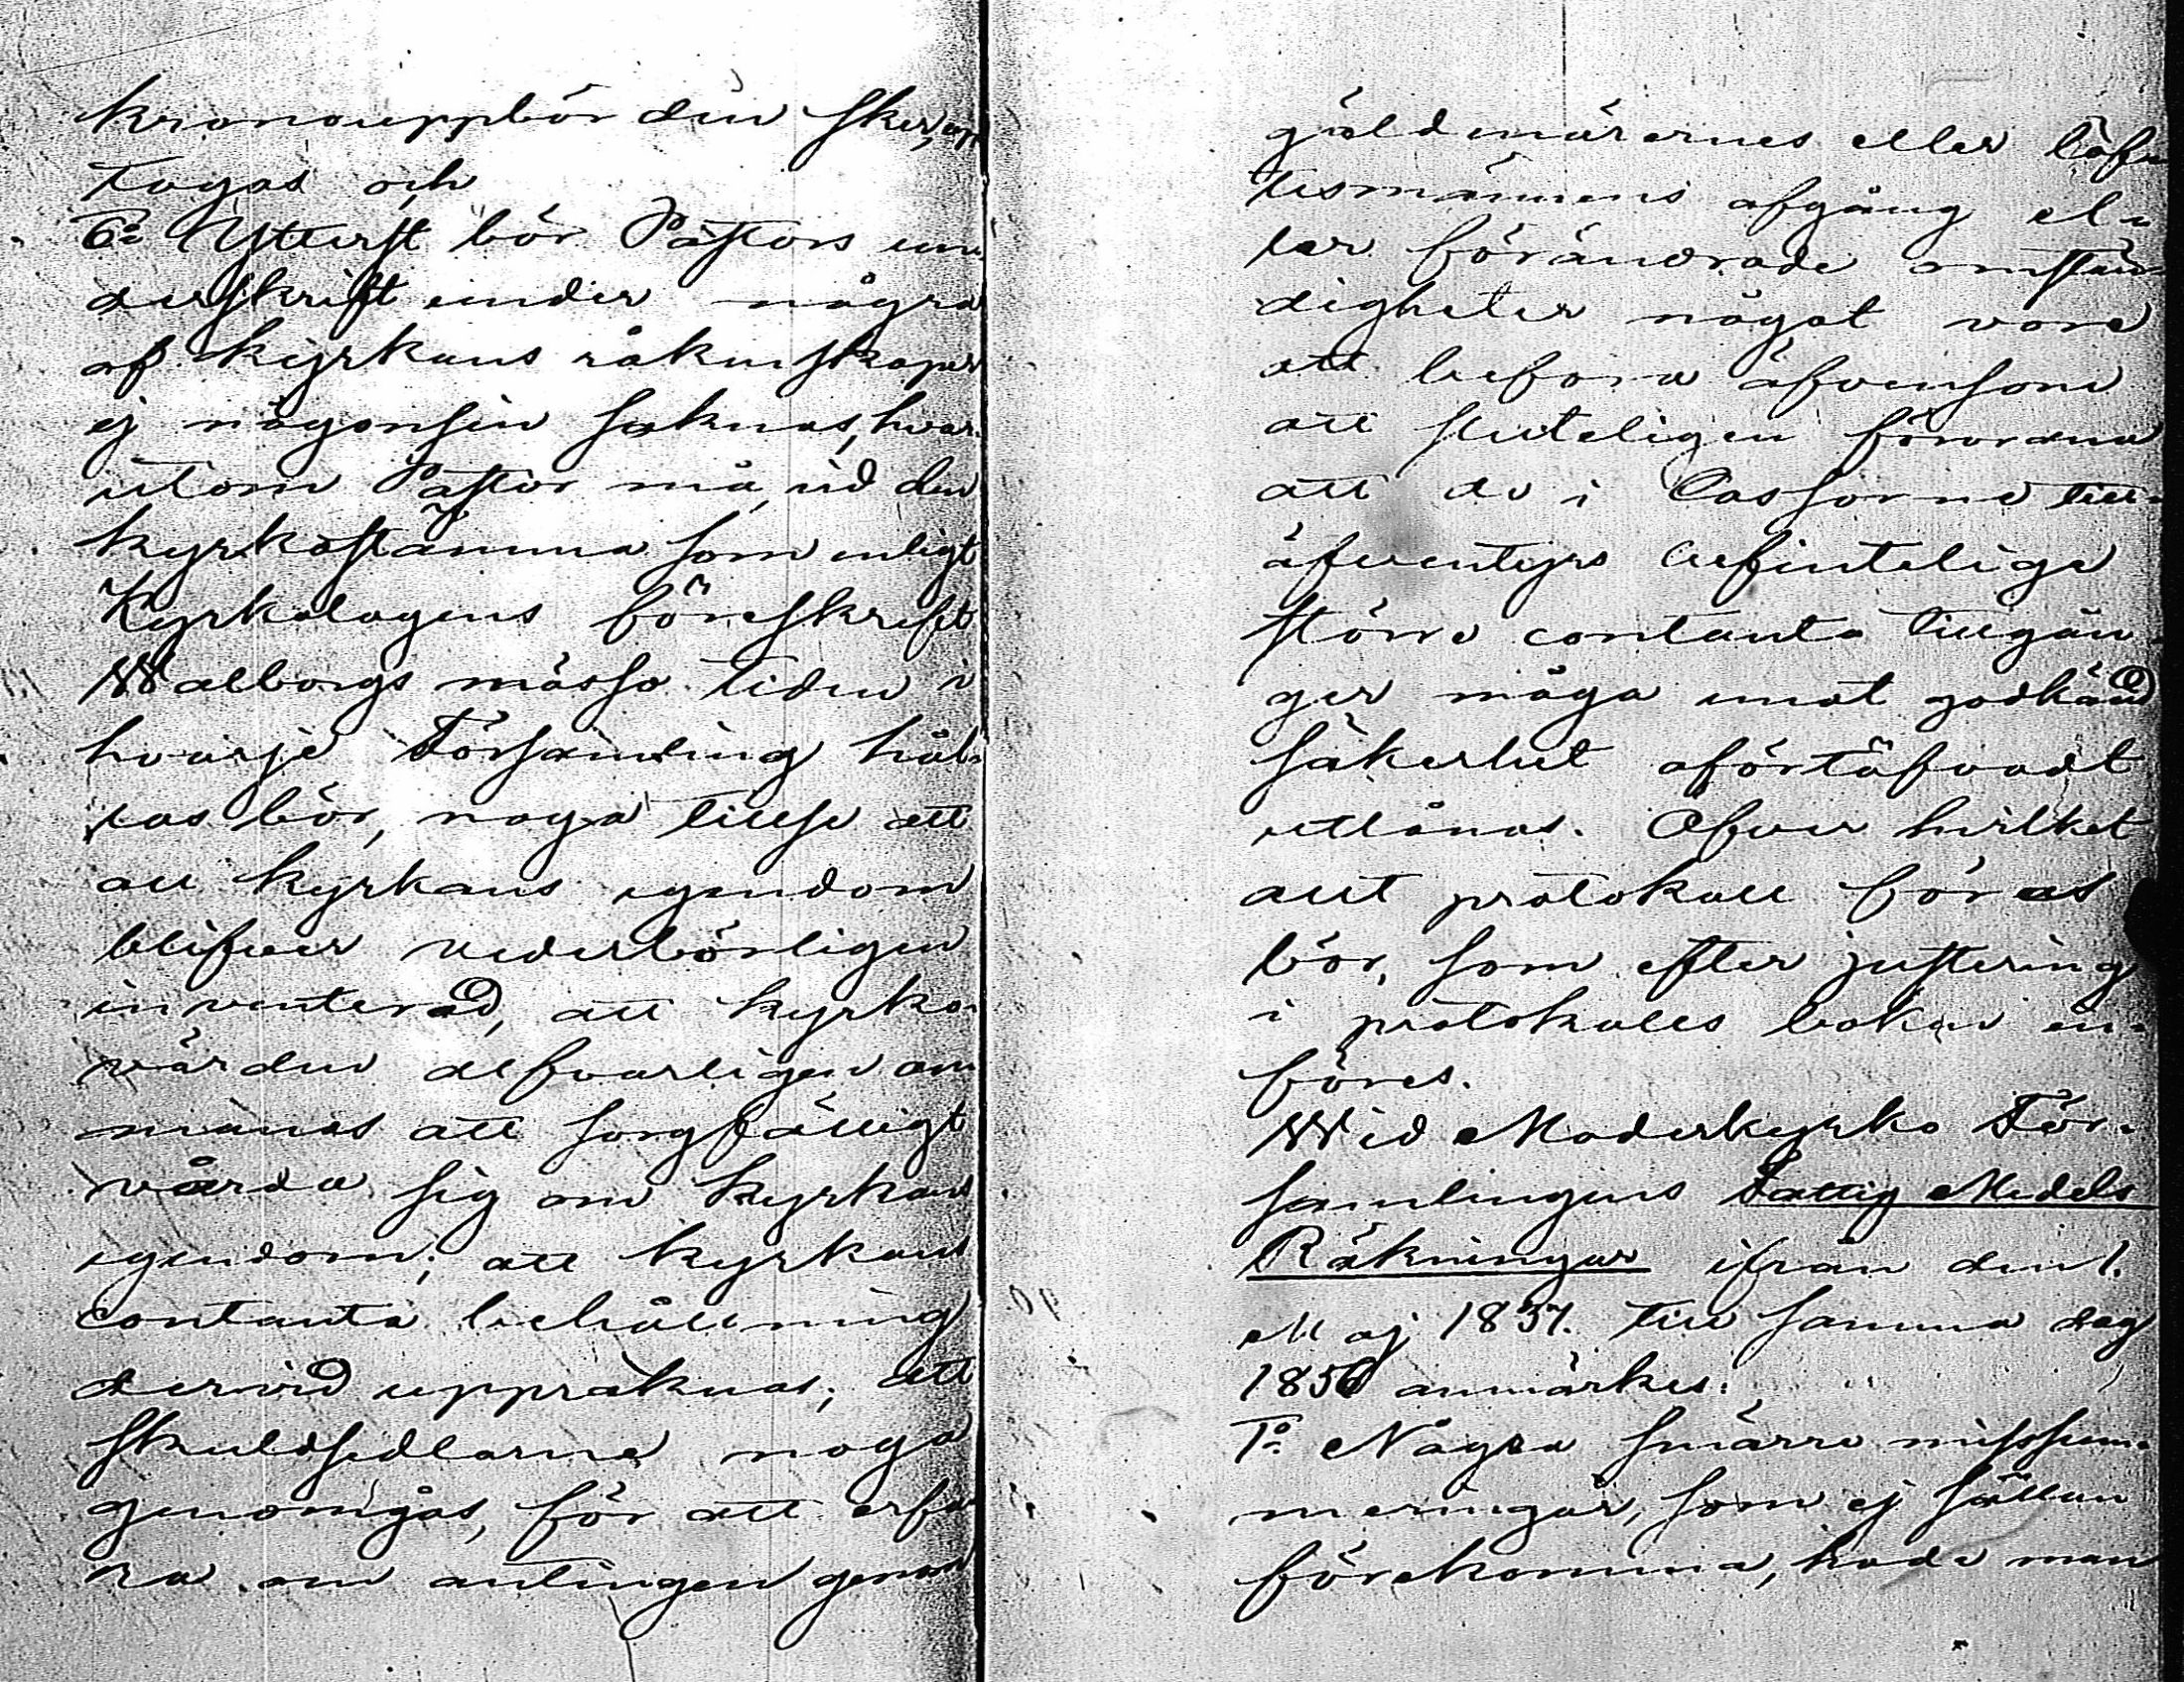 kronouppbörden sker, upp
tagas och
6o Ytterst bör Pastors un-
derskrift under några
af kyrkans räkenskaper
ej någonsin saknas, hvar-
utom Pastor må, vid den
kyrkostämma som enligt
Kyrkolagens föreskrift
Walborgs mässo tiden i
hvarje Församling hål-
las bör, noga tillse att
all kyrkans egendom
blifver vederbörligen
inventerad, att kyrko-
värden alfvarligen an
manas att sorgfälligt
vårda sig om kyrkans
egendom; att kyrkans
contanta behållning
dervid uppräknas; att
skuldsedlarne noga
genomgås, för att erfa
ra om antingen genom
gäldenärernes eller löf-
tesmännens afgång el-
ler förändrade omstän-
digheter något vore
att befara äfvensom
att sluteligen förordna
att de i Cassorne till-
äfventyrs befintelige
större contanta tillgån-
gar måga emot godkänd
säkerhet oförtöfvadt
utlånas. Öfver hvilket
allt protokoll föras
bör, som efter justering
i protokolls boken in-
föres.
Wid Moderkyrko För-
samlingens Fattig Medels
Räkningar ifrån den 1.
Maj 1837. till samma dag
1856 anmärkes:
1o Några smärre missum-
meringar, som ej sällan
förekomma, hade man